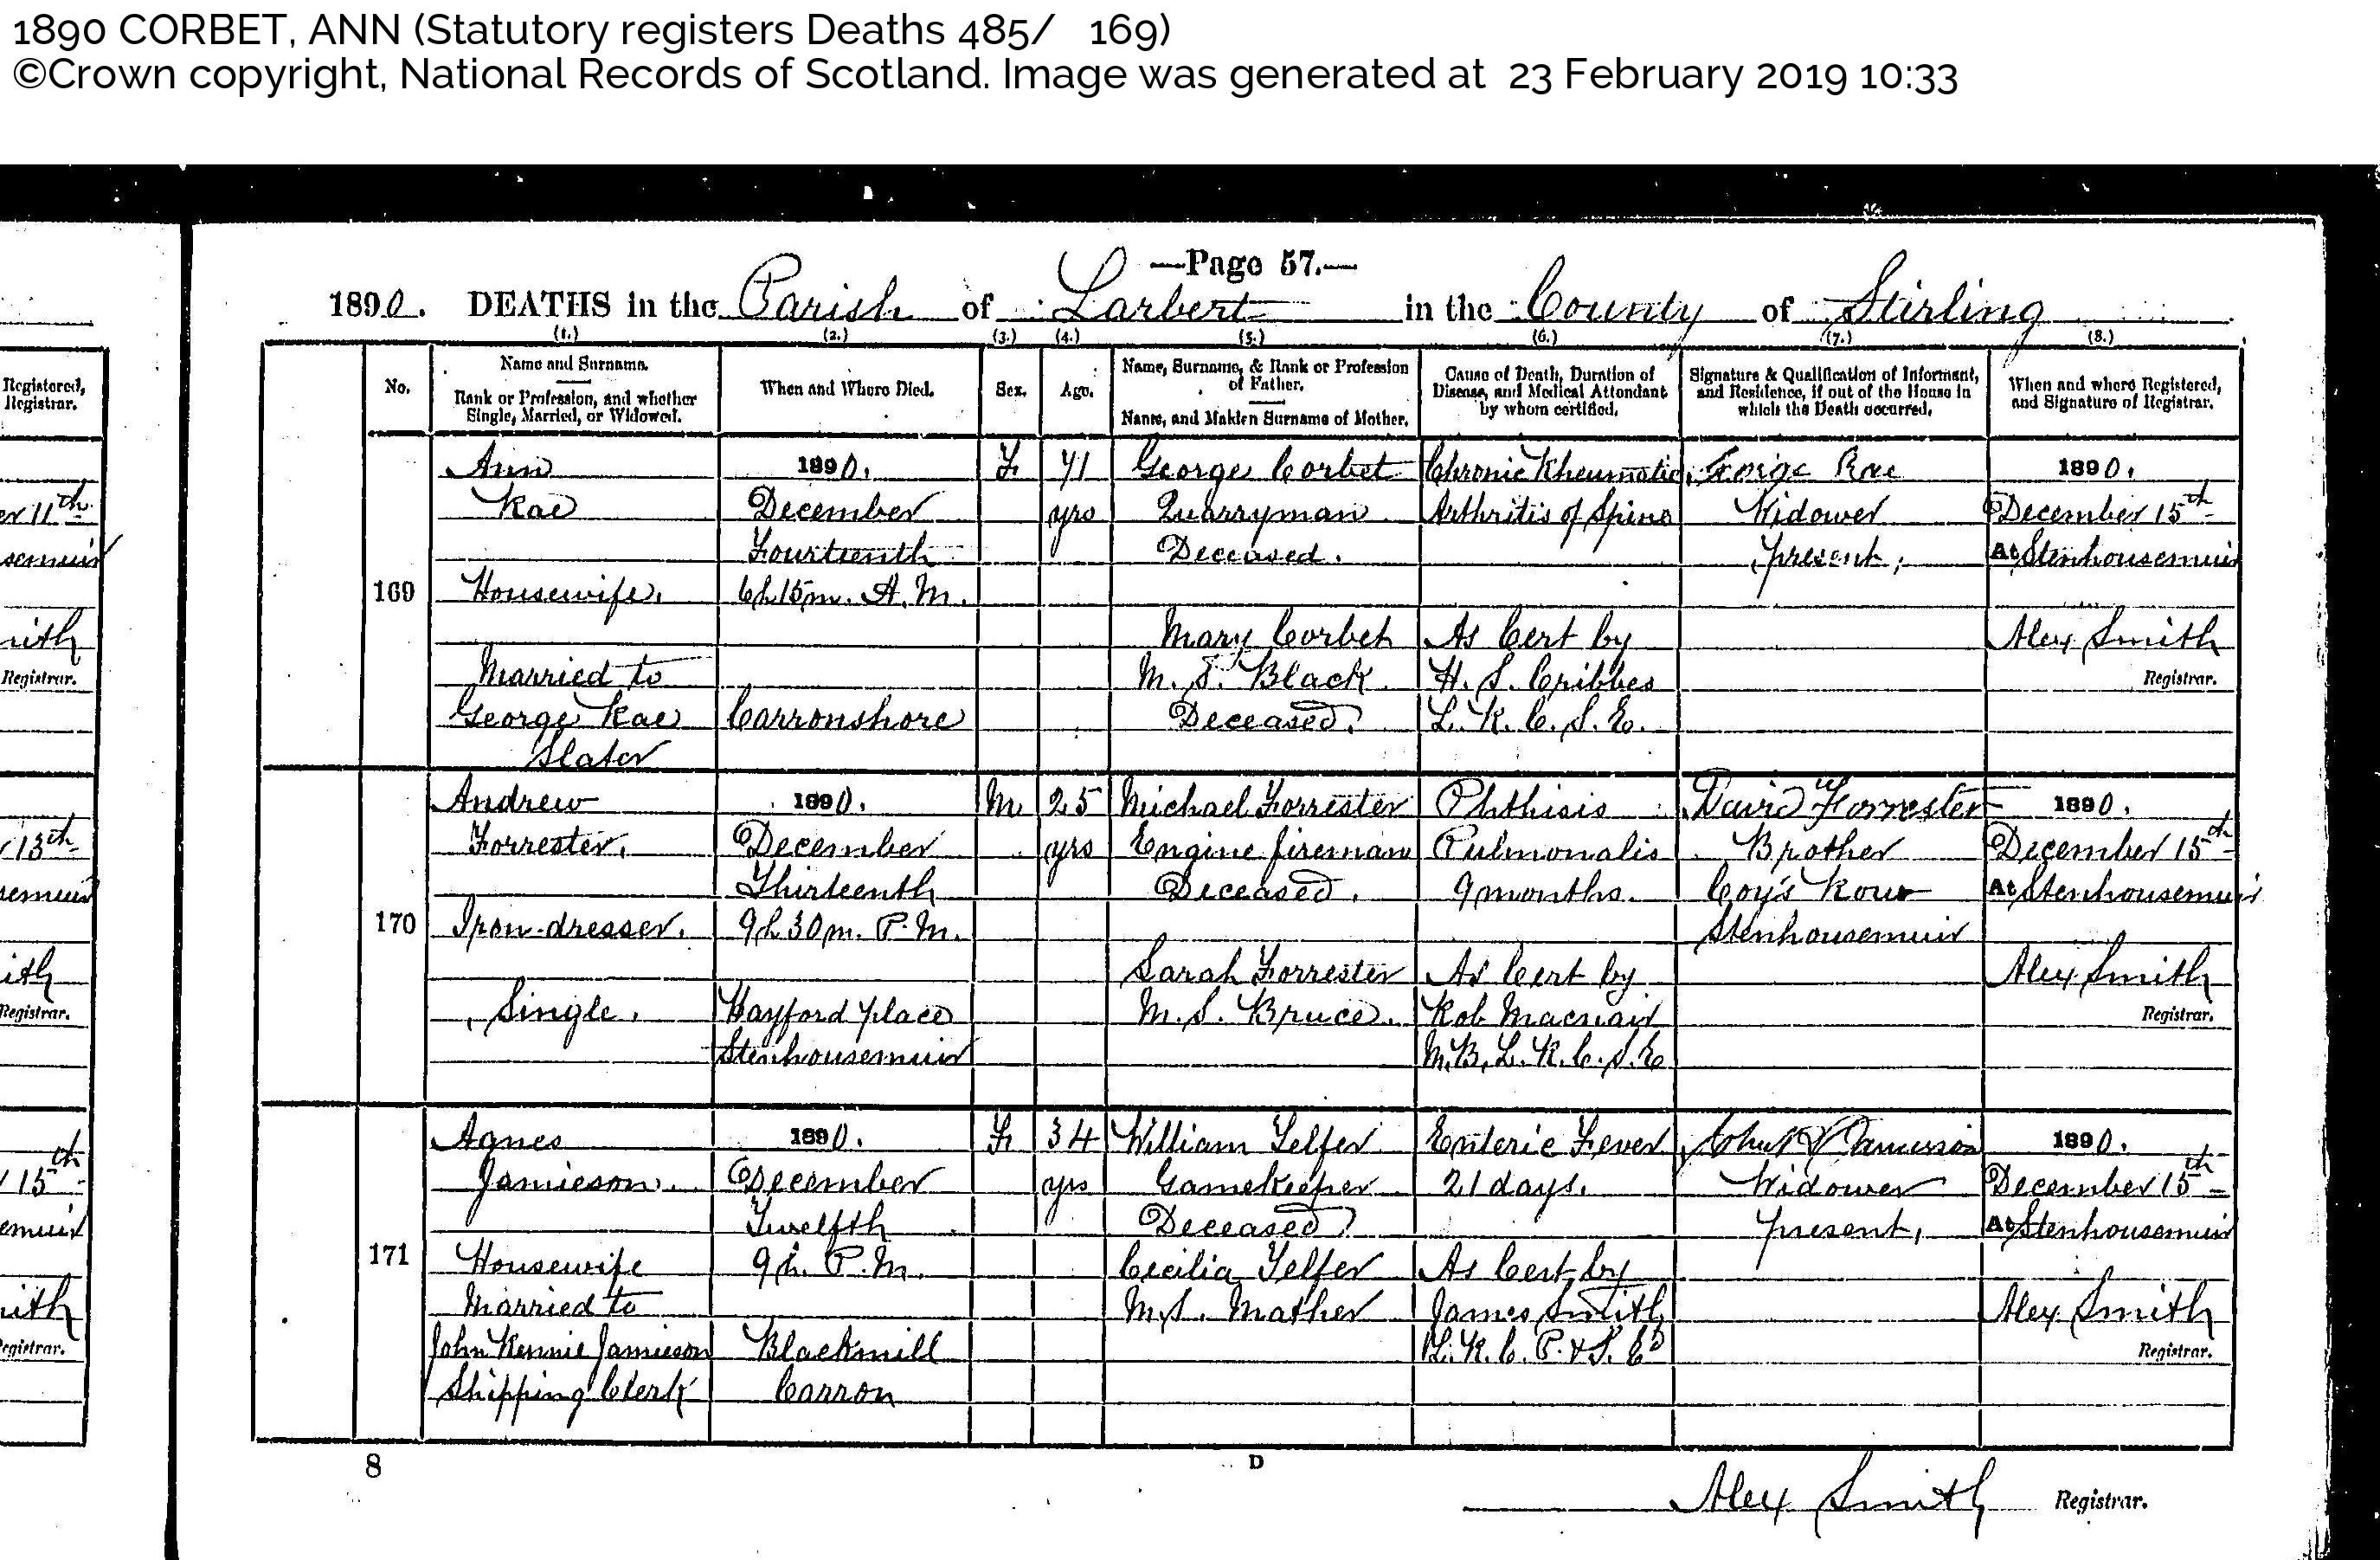 1890 CORBET, ANN (Statutory registers Deaths 485/ 169)
©Crown copyright, National Records of Scotland. Image was generated at 23 February 2019 10:33
—Page 57.—
1890. DEATHS in the Parish of Larbert in the County of Stirling
(1.) (2.) (3.) (4.) (5.) (6.) (7.) (8.)
No.
Name and Surname.
Rank or Profession, and whether
Single, Married, or Widowed.
When and Where Died.
Sex.
Age.
Name, Surname, & Rank or Profession
of Father.
Name, and Maiden Surname of Mother.
Cause of Death, Duration of
Disease, and Medical Attendant
by whom certified.
Signature & Qualification of Informant,
and Residence, if out of the House in
which the Death occurred.
When and where Registered,
and Signature of Registrar.
Registered,
Registrar.
169
Ann
Rae
Housewife.
Married to
George Rae
Slater
1890.
December
Fourteenth
6h 15m. A.M.
Carronshore
F.
71
yrs
George Corbet
Quarryman
Deceased.
Mary Corbet
M.S. Black
Deceased.
Chronic Rheumatic
Arthritis of Spine
As Cert by
H. S. Cribbes
L.R.C.S.E.
George Rae
Widower
present.
1890.
December 15th
At Stenhousemuir
Alex Smith
Registrar.
170
Andrew
Forrester.
Iron-dresser.
Single.
1890.
December
Thirteenth
9h 30m. P.M.
Hayford place
Stenhousemuir
M
25
yrs
Michael Forrester
Engine fireman
Deceased.
Sarah Forrester
M.S. Bruce.
Phthisis
Pulmonalis
9 months.
As Cert by
Rob Macnair
M.B, L.R.C.S.E
David Forrester
Brother
Coy's Row
Stenhousemuir
1890.
December 15th
At Stenhousemuir
Alex Smith
Registrar.
171
Agnes
Jamieson.
Housewife
Married to
John Rennie Jamieson
Shipping Clerk
1890.
December
Twelfth
9h. P.M.
Blackmill
Carron
F.
34
yrs
William Telfer
Gamekeeper
Deceased
Cecilia Telfer
M.S. Mather
Enteric Fever
21 days.
As Cert by
James Smith
L.R.C.P. & S. Ed
John R Jamieson
Widower
present,
1890.
December 15th
At Stenhousemuir
Alex Smith
Registrar.
8
D
Alex Smith Registrar.